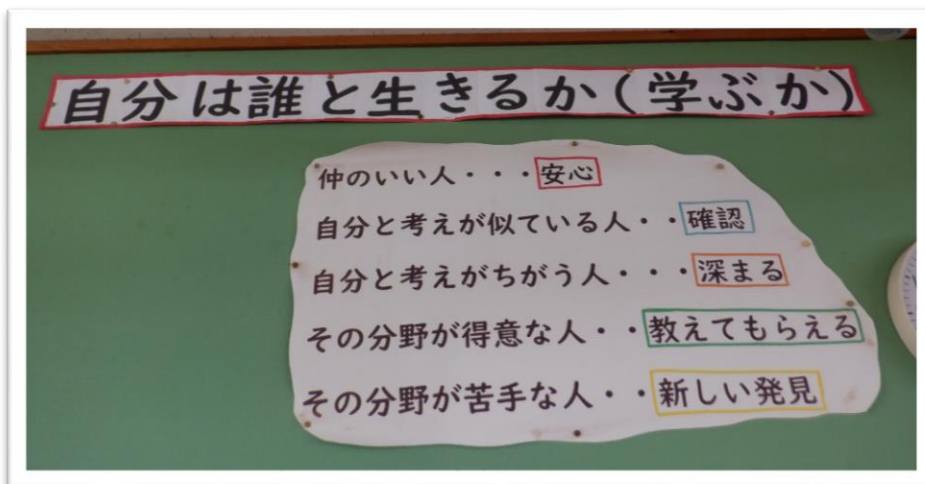 自分は誰と生きるか(学ぶか)
仲のいい人・・・安心
自分と考えが似ている人・・確認
自分と考えがちがう人・・・深まる
その分野が得意な人・・教えてもらえる
その分野が苦手な人・・新しい発見